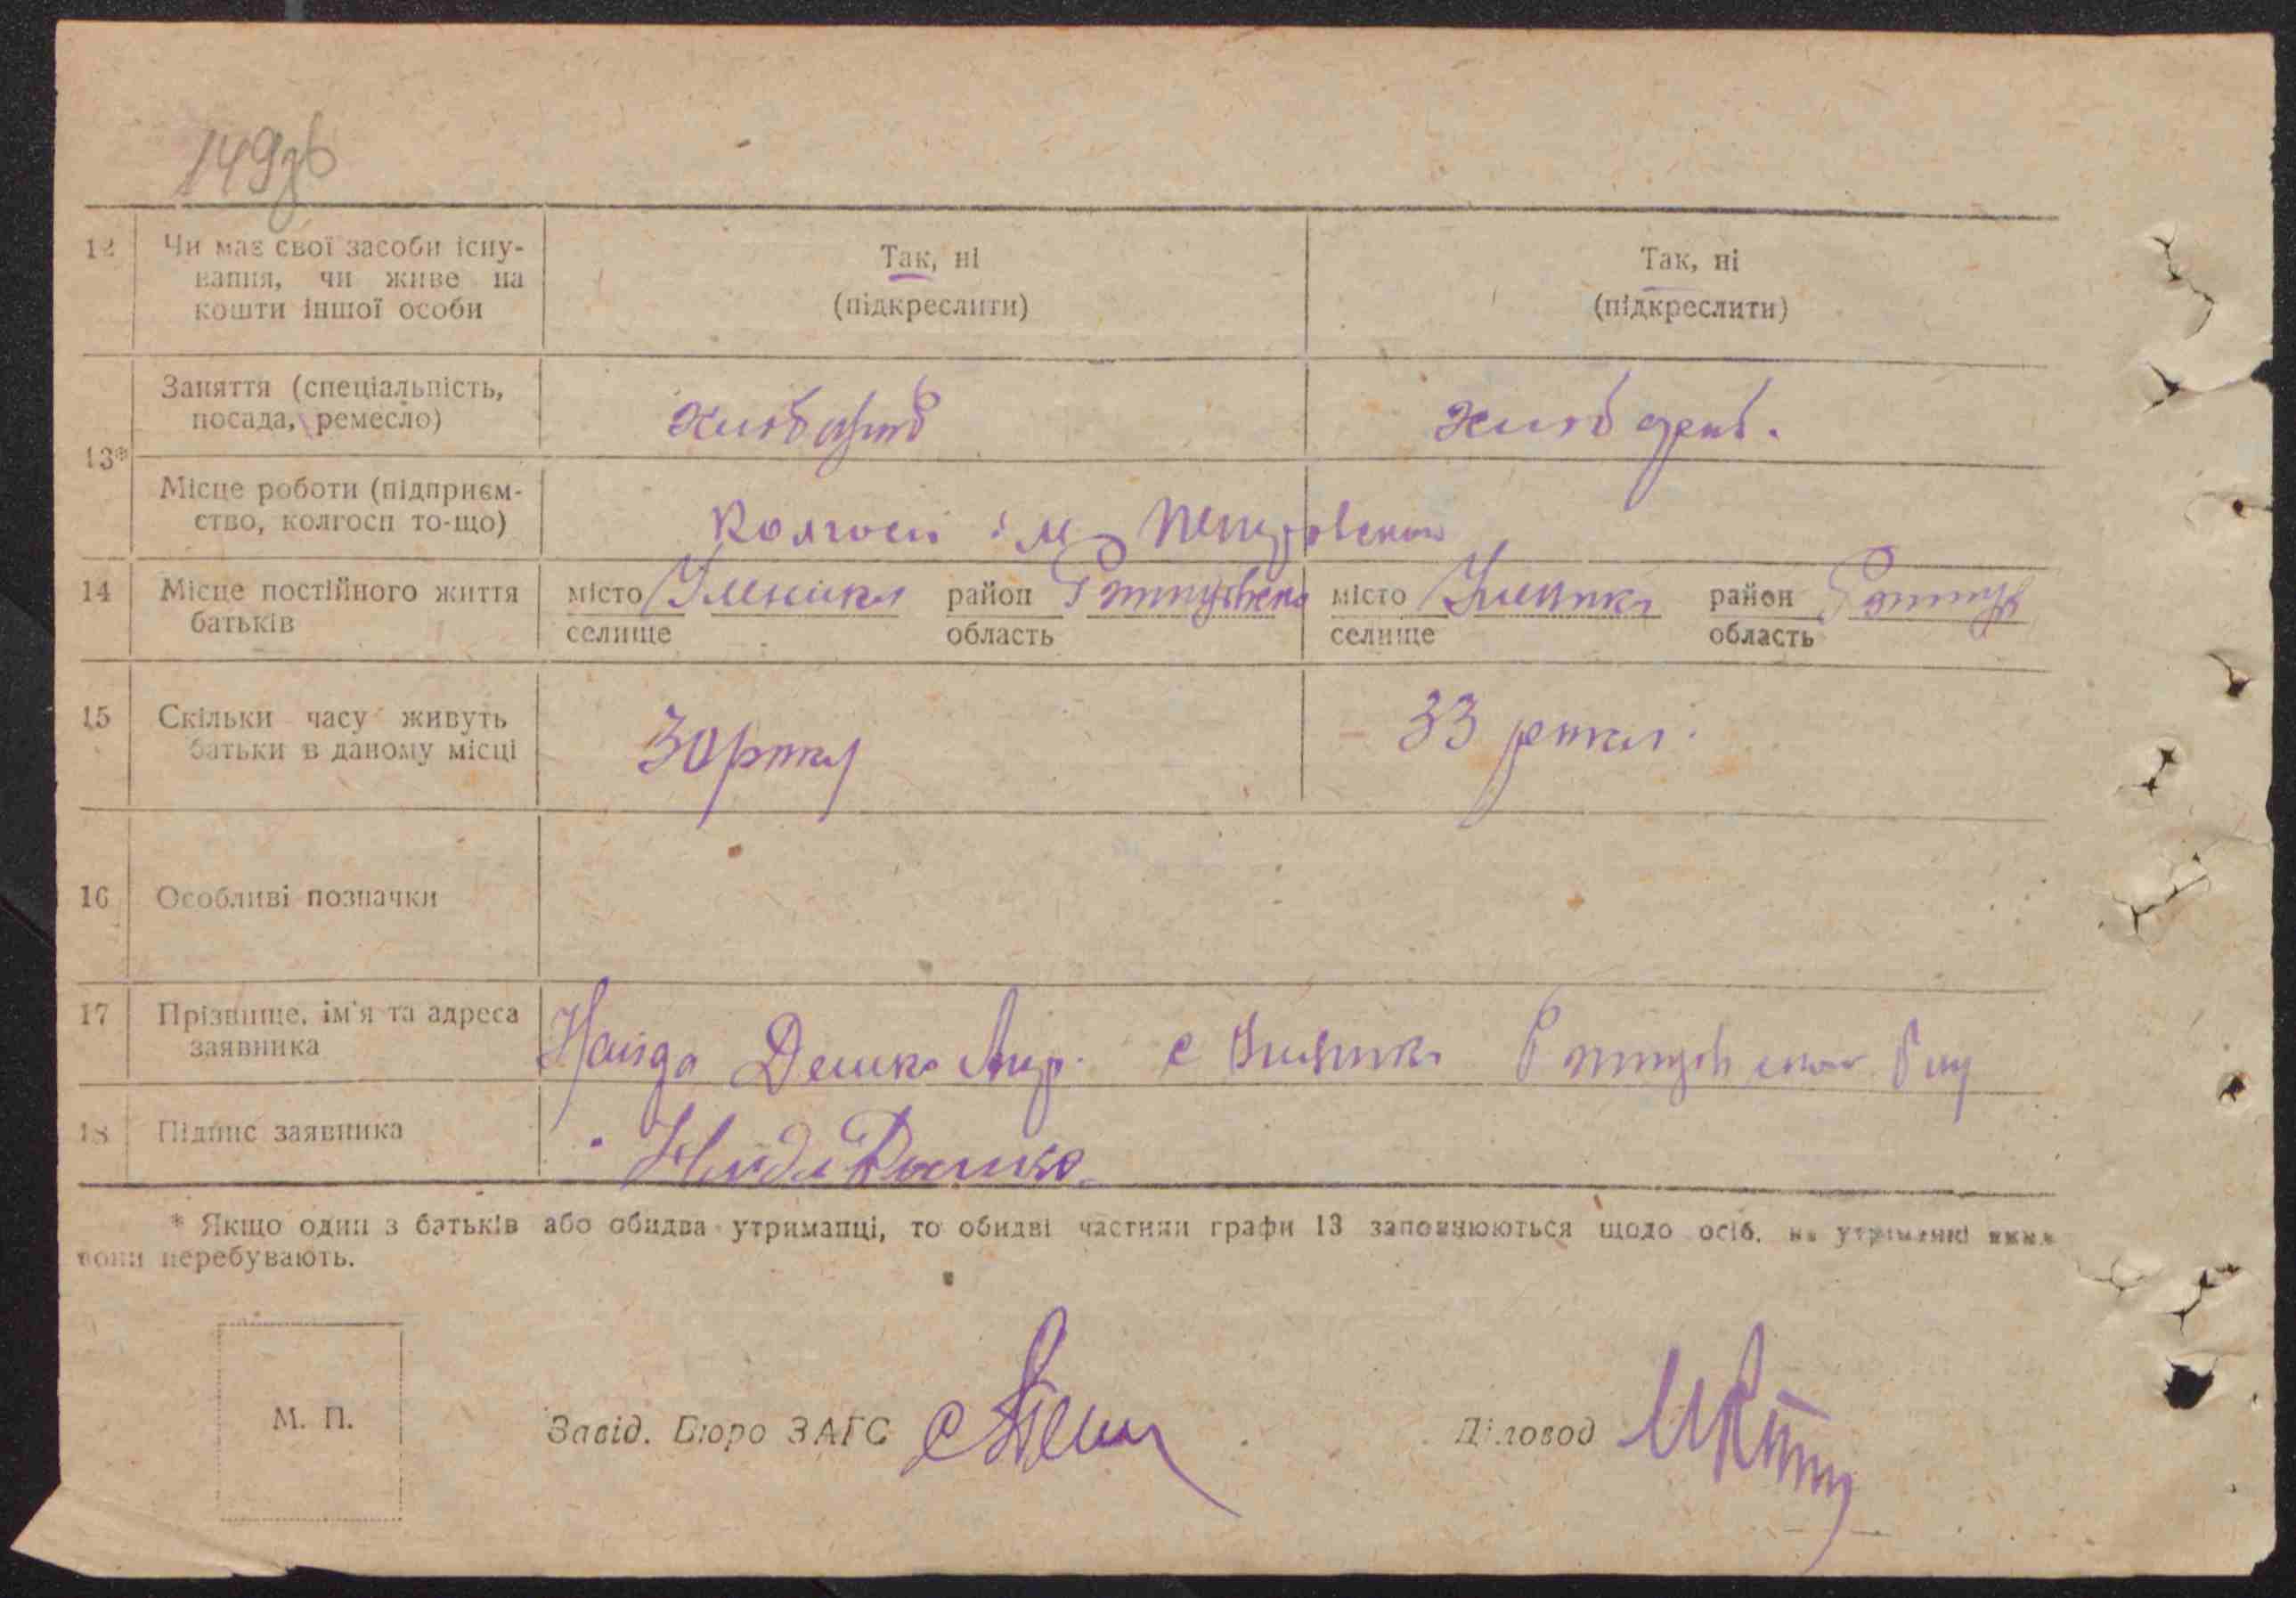 149зв
12 Чи має свої засоби існу-
вання, чи живе на
кошти іншої особи
Так, ні
(підкреслити)
Так, ні
(підкреслити)
13*
Заняття (спеціальність,
посада, ремесло)
хлібороб
хлібороб.
Місце роботи (підприєм-
ство, колгосп то-що)
Колгосп ім Петровського
14 Місце постійного життя
батьків
місто район
селище область
місто район
селище область
15 Скільки часу живуть
батьки в даному місці
30 років
33 роки
16 Особливі позначки
17 Прізвище, ім'я та адреса
заявника
Найда с
18 Підпис заявника
Найда
* Якщо один з батьків або обидва утриманці, то обидві частини графи 13 заповнюються щодо осіб, на утриманні яких
вони перебувають.
М. П.
Завід. Бюро ЗАГС
Діловод